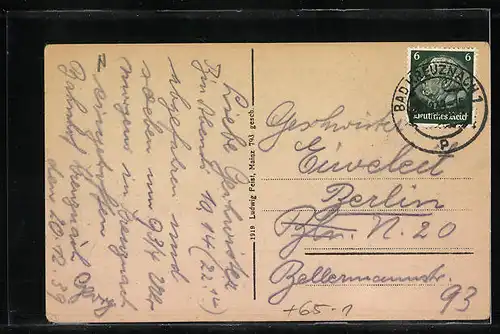 Liebe Geschwister
Bin Abends 10,14 (22.14)
abgefahren und
soeben um 9 Uhr
morgens in Kreuznach
eingetroffen.
Bahnhof Kreuznach
den 20.12.39
1919 Ludwig Feist, Mainz 793 gesch.
6 6
Deutsches Reich
BAD KREUZNACH 1
p
Geschwister
Berlin
N. 20
Bellermannstr.
93
+65.1